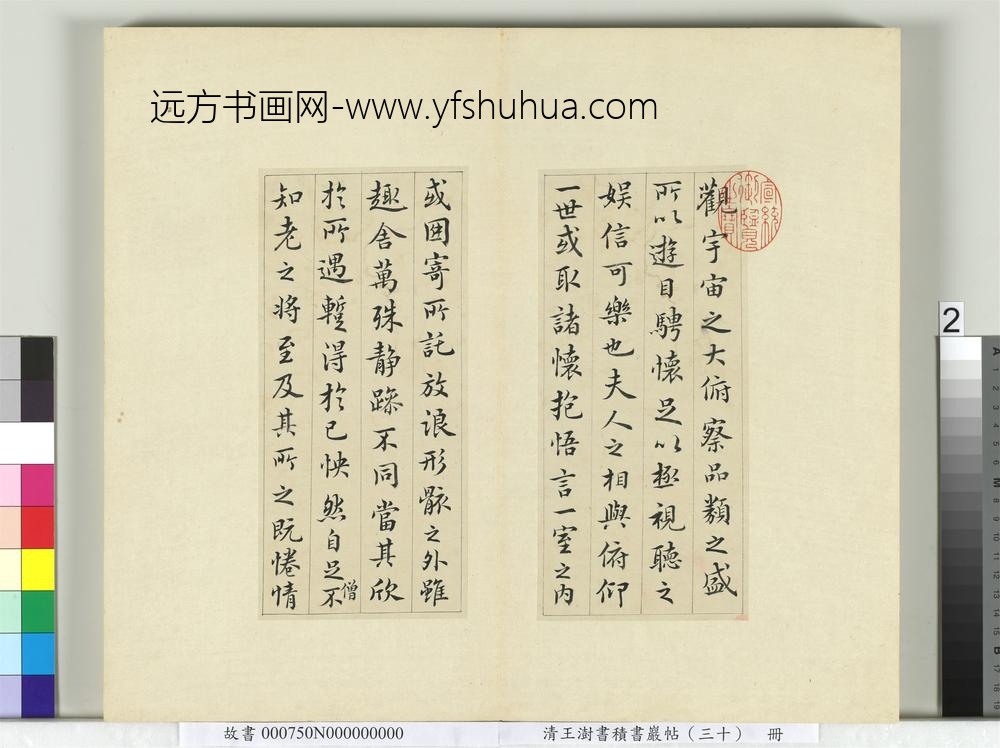 远方书画网-www.yfshuhua.com
觀宇宙之大俯察品類之盛
所以遊目騁懷足以極視聽之
娱信可樂也夫人之相與俯仰
一世或取諸懷抱悟言一室之内
或因寄所託放浪形骸之外雖
趣舍萬殊静躁不同當其欣
於所遇蹔得於己怏然自足不
僧
知老之將至及其所之既惓情
2
故書 000750N000000000
清王澍書積書巖帖（三十） 冊